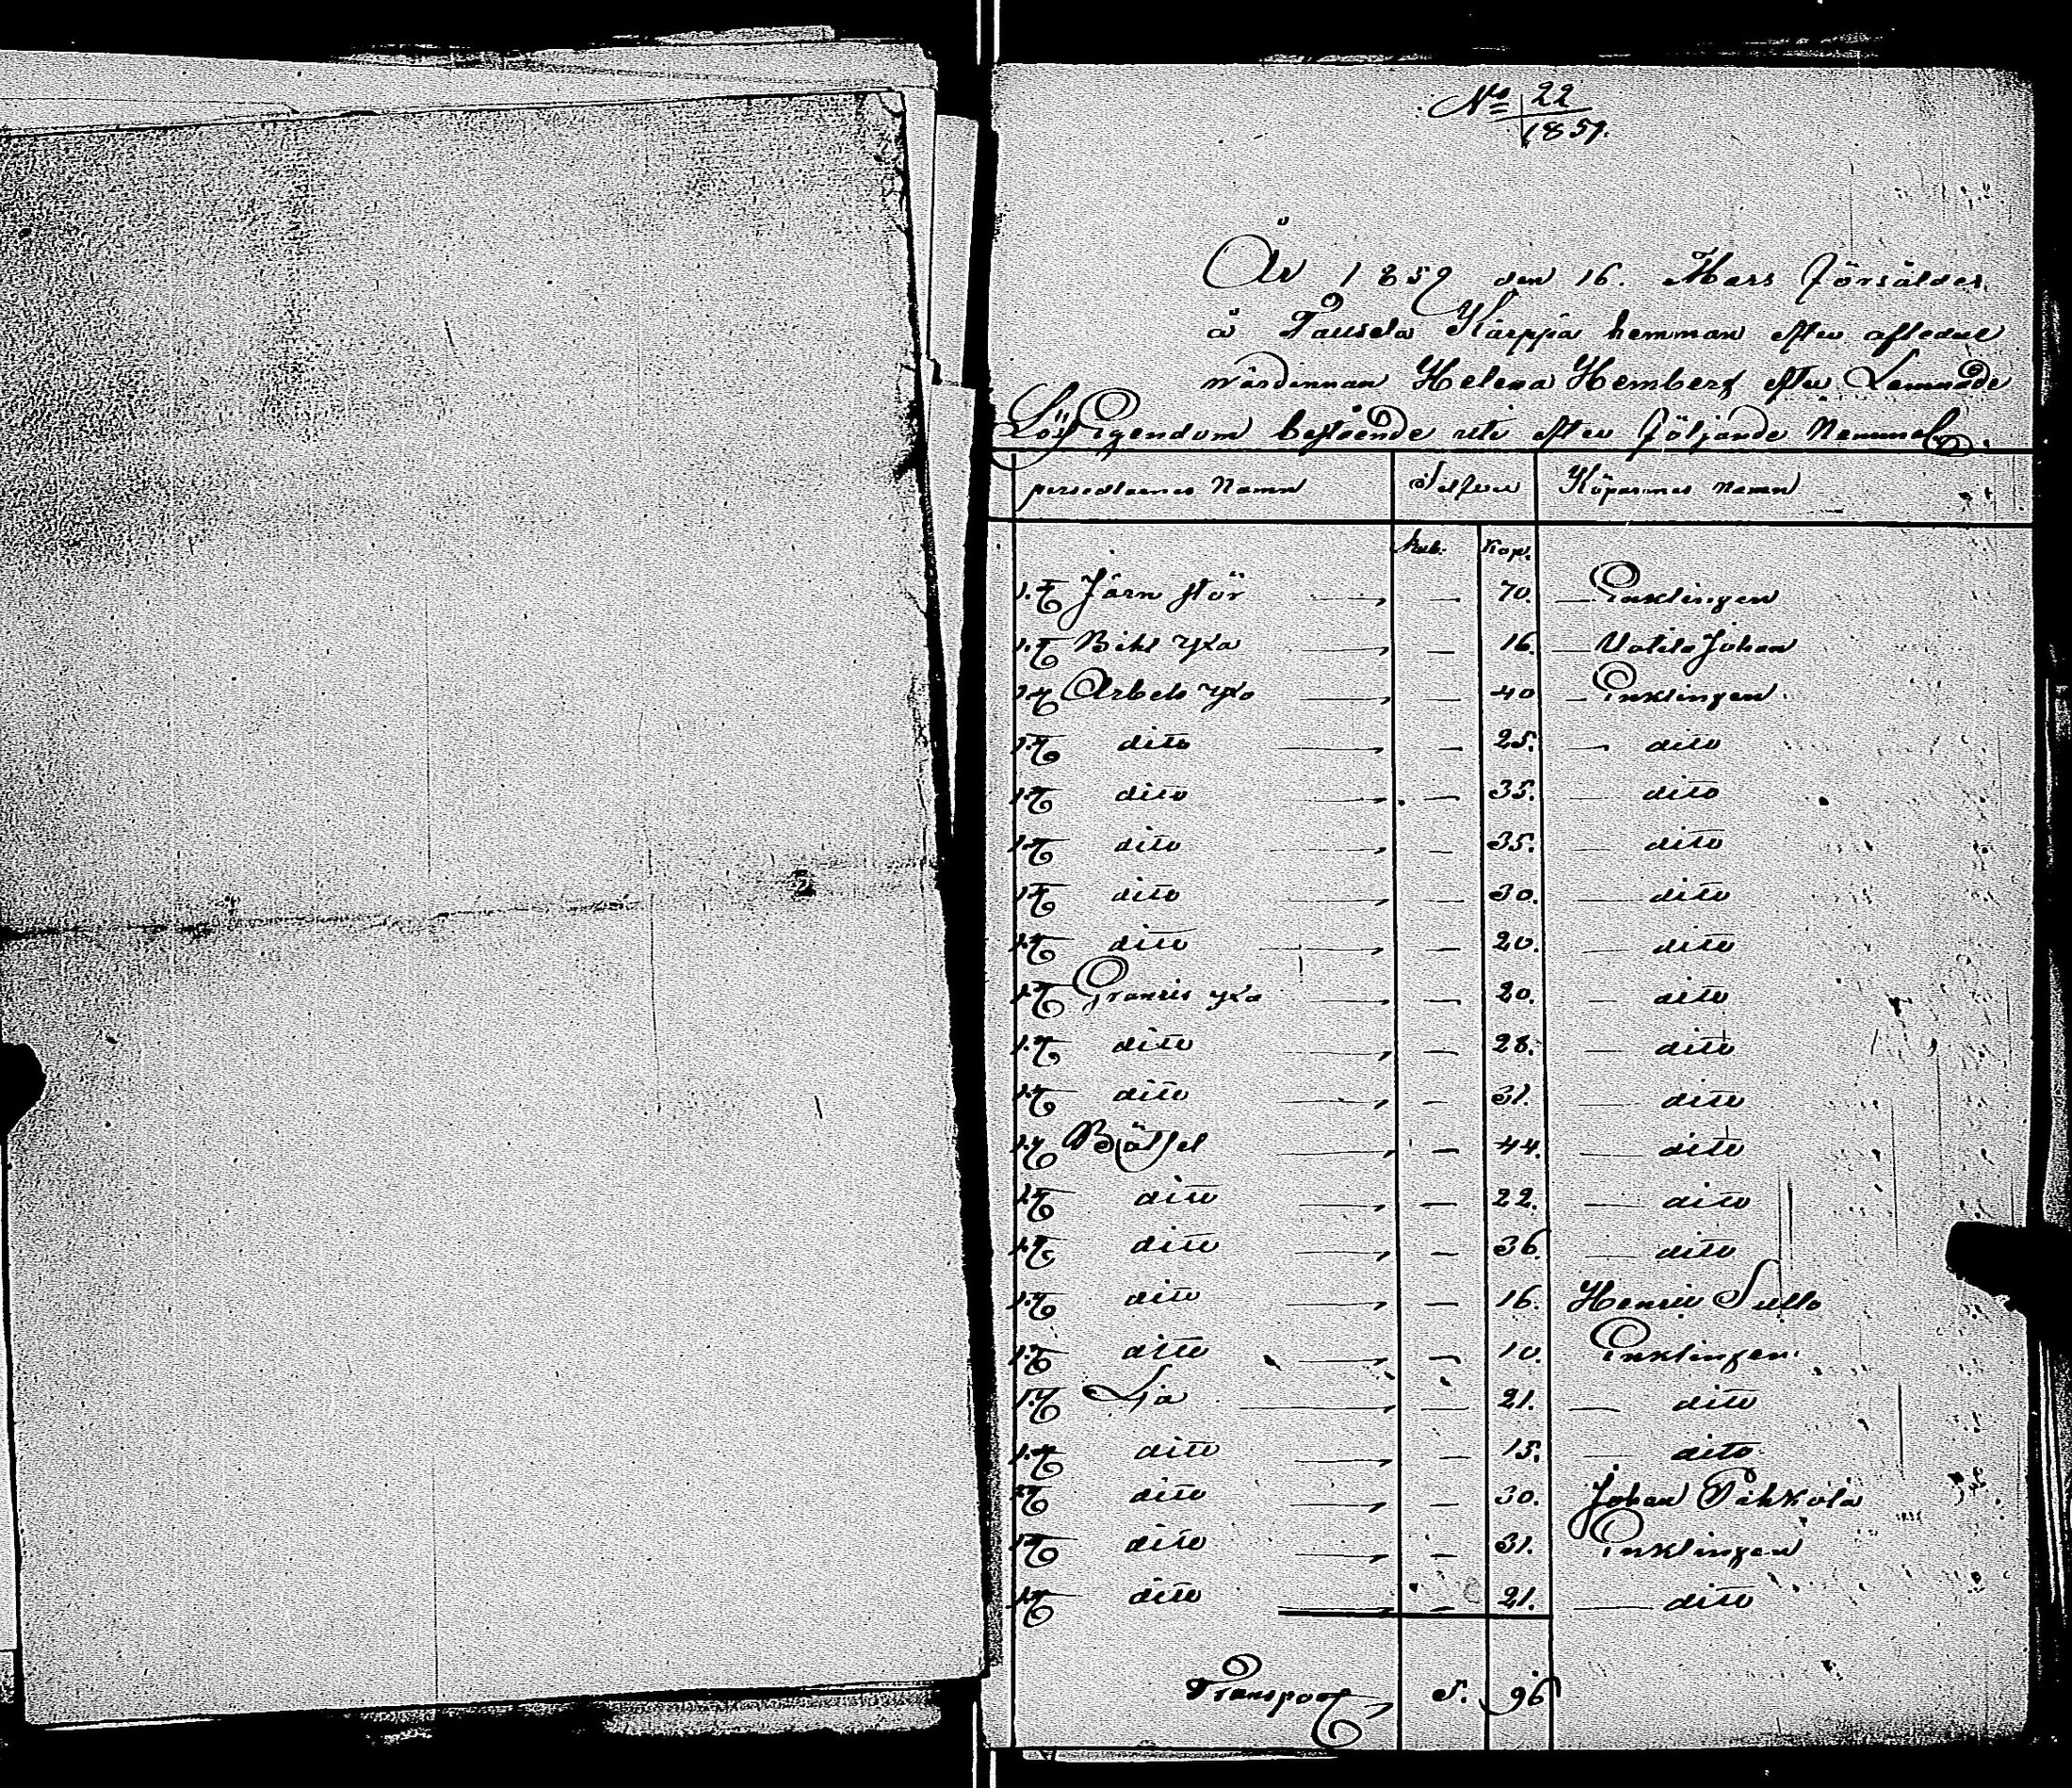 No 22
1859.
År 1859 den 16. Mars Försåldes
å Pausela Karppia hemman efter aflednel
wärdinnan Helena Hemberg efter Lemnade
Lös Egendom bestående uti efter Följande Nemmel.
persedlarnes Namn Silfver Köparnnes namn
Rub. Kop.
1. st Järn stör — 70. Enklingen
1. st Bihl yxa — 16. Uotila Johan
1 st Arbets yxa — 40 Enklingen
1 st dito — 25. dito
1 st dito — 35. dito
1 st dito — 35. dito
1 st dito — 30. dito
1 st dito — 20. dito
1 st Granris yxa — 20. dito
1. st dito — 28. dito
1. st dito — 31. dito
1. st Bjässel — 44. dito
1 st dito — 22. dito
1 st dito — 36. dito
1. st dito — 16. Henric Sullo
1. st dito — 10. Enklingen.
1. st Lia — 21. dito
1. st dito — 15. dito
1 st dito — 30. Johan Pihkola
1 st dito — 31. Enklingen
1 st dito — 21. dito
Transport 5. 96